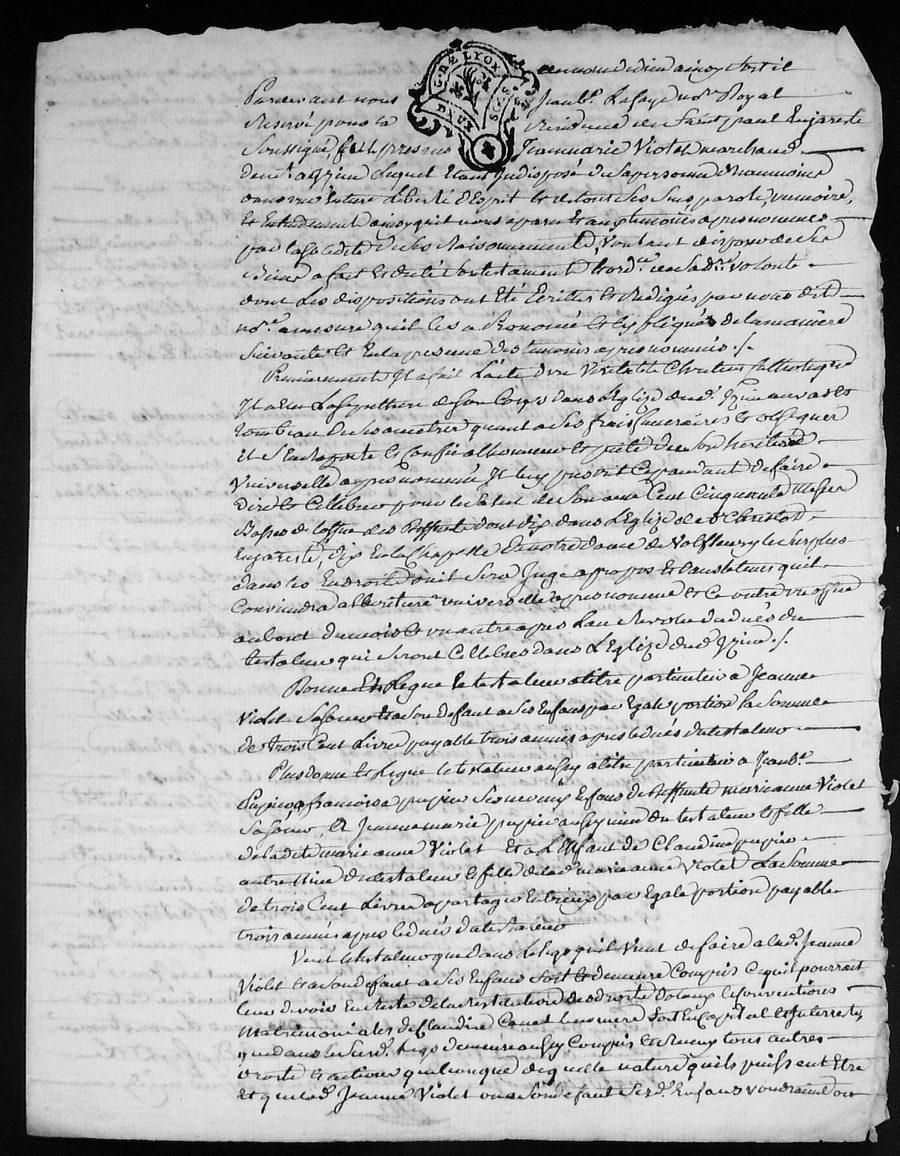 G. DE LYON
DEUX SOLS
au nom de dieu ainsy soit il
Pardevant nous Jean Bte. Lafaye nore. Royal
Reservé pour la Residence de Saint paul En jareste
Soussigné, fut present Jean marie Violet marchand
demt. a Izieu Lequel Etant Indisposé de sa personne Neanmoins
dans une Entiere Liberté d'Esprit et de tous ses sens parole, memoire,
Et Entendement ainsy quil nous a paru Et aux temoins apres nommés
par la solidité de ses Raisonnements, Voulant disposer de ses
Biens a fait Et dicté son testament et ordce. de dre. volonté
dont Les dispositions ont Eté Ecrites Et Redigées par nous dit
nore. a mesure quil les a Enoncé Et Expliqués de la maniere
Suivante Et En la presence des temoins apres nommés ./.
Premierement Il a fait L'acte d'un Veritable Chretien Catholique
Il a Elu La sepulture de son Corps dans L'Eglise dud. Izieu au vas et
tombeau de ses ancetres quant a ses frais funeraires Et obseques
il s'En raporte Et Confie a l'honneur Et pieté de son heritiere
Universelle apres nommée Il luy prescrit Cependant de faire
dire Et Celebrer pour le Salut de Son ame Cent Cinquante Messes
Basses de L'office des deffunts dont dix dans L'Eglise de St. Christot
En jareste, dix En la Chapelle de notre dame de Valfleury Le surplus
dans les Endroits ou il sera Jugé a propos Et dans le tems quil
Conviendra a L'heritiere universelle apres nommée Et Ce outre un office
au bout du mois Et un autre apres L'an Revolu du deces du
testateur qui seront Celebres dans L'Eglize dud. Izieu ./.
Donne Et Legue Le testateur a titre particulier a Jeanne
Violet Sa soeur Et a son defaut a ses Enfans par Egale portion La Somme
de trois Cent Livres payable trois années apres le deces du testateur
Plus donne Et Legue Le testateur aussy a titre particulier a Jean Bte.
Pupier francoise pupier Ses neveux Enfans de deffunte marie anne Violet
Sa soeur, Et Jeanne marie pupier aussy niece du testateur Et fille
de la dite marie anne Violet Et a L'Enfant de Claudine pupier
autre Niece du testateur Et fille de lad. marie anne Violet La Somme
de trois Cent Livres a partager Entre eux par Egale portion payable
trois années apres le deces du testateur
Veut Le testateur que dans Le Legs quil Vient de faire a lad. Jeanne
Violet Et a son defaut a ses Enfans soit Et demeure Compris Ce quil pourrait
leur devoir En reste de la restitution des droits dotaux Et conventions
Matrimoniales de Claudine leur mere soit En Capital Et Interrets
que dans le susd. Legs demeure aussy Compris Et tous autres
droits Et actions quelconque de quelle nature quils puissent Etre
Et que lad. Jeanne Violet ou a son defaut sesd. Enfans voudraient ou